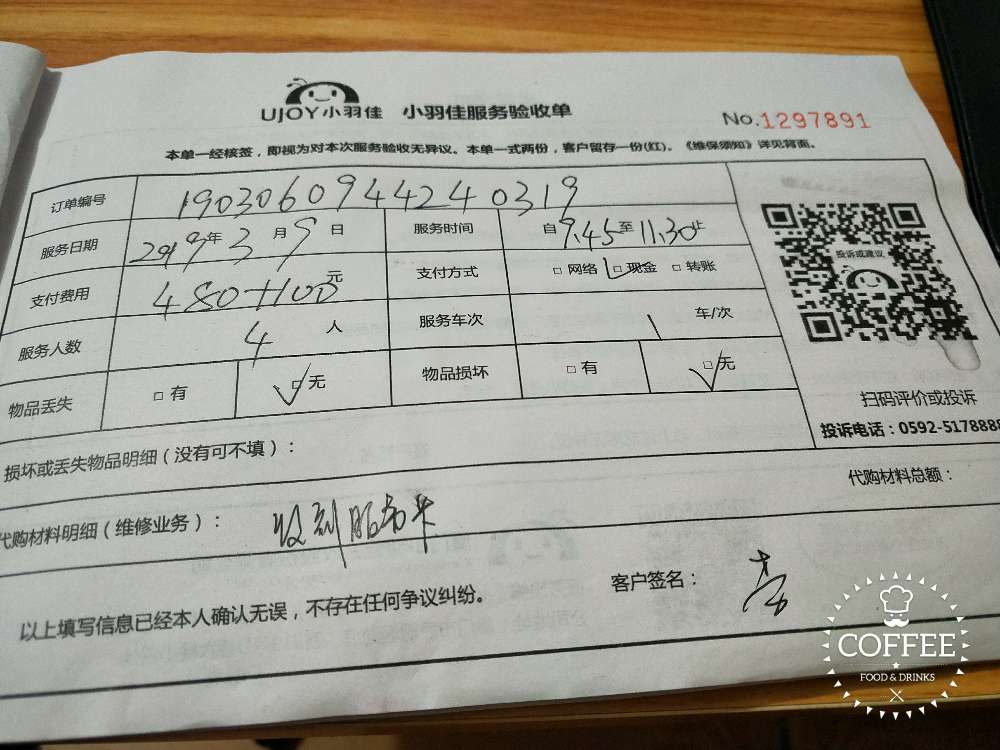 UJOY小羽佳 小羽佳服务验收单 No.1297891
本单一经核签，即视为对本次服务验收无异议。本单一式两份，客户留存一份(红)。《维保须知》详见背面。
订单编号 190306094424 0319
服务日期 2019年3月9日 服务时间 自9.45至11.30止
支付费用 480+100元 支付方式 □网络 □现金 □转账
服务人数 4人 服务车次 1车/次
物品丢失 □有 □无 物品损坏 □有 □无
投诉或建议
扫码评价或投诉
投诉电话：0592-5178888
损坏或丢失物品明细（没有可不填）：
代购材料总额：
代购材料明细（维修业务）： 收到服务卡
以上填写信息已经本人确认无误，不存在任何争议纠纷。 客户签名：
COFFEE
FOOD & DRINKS